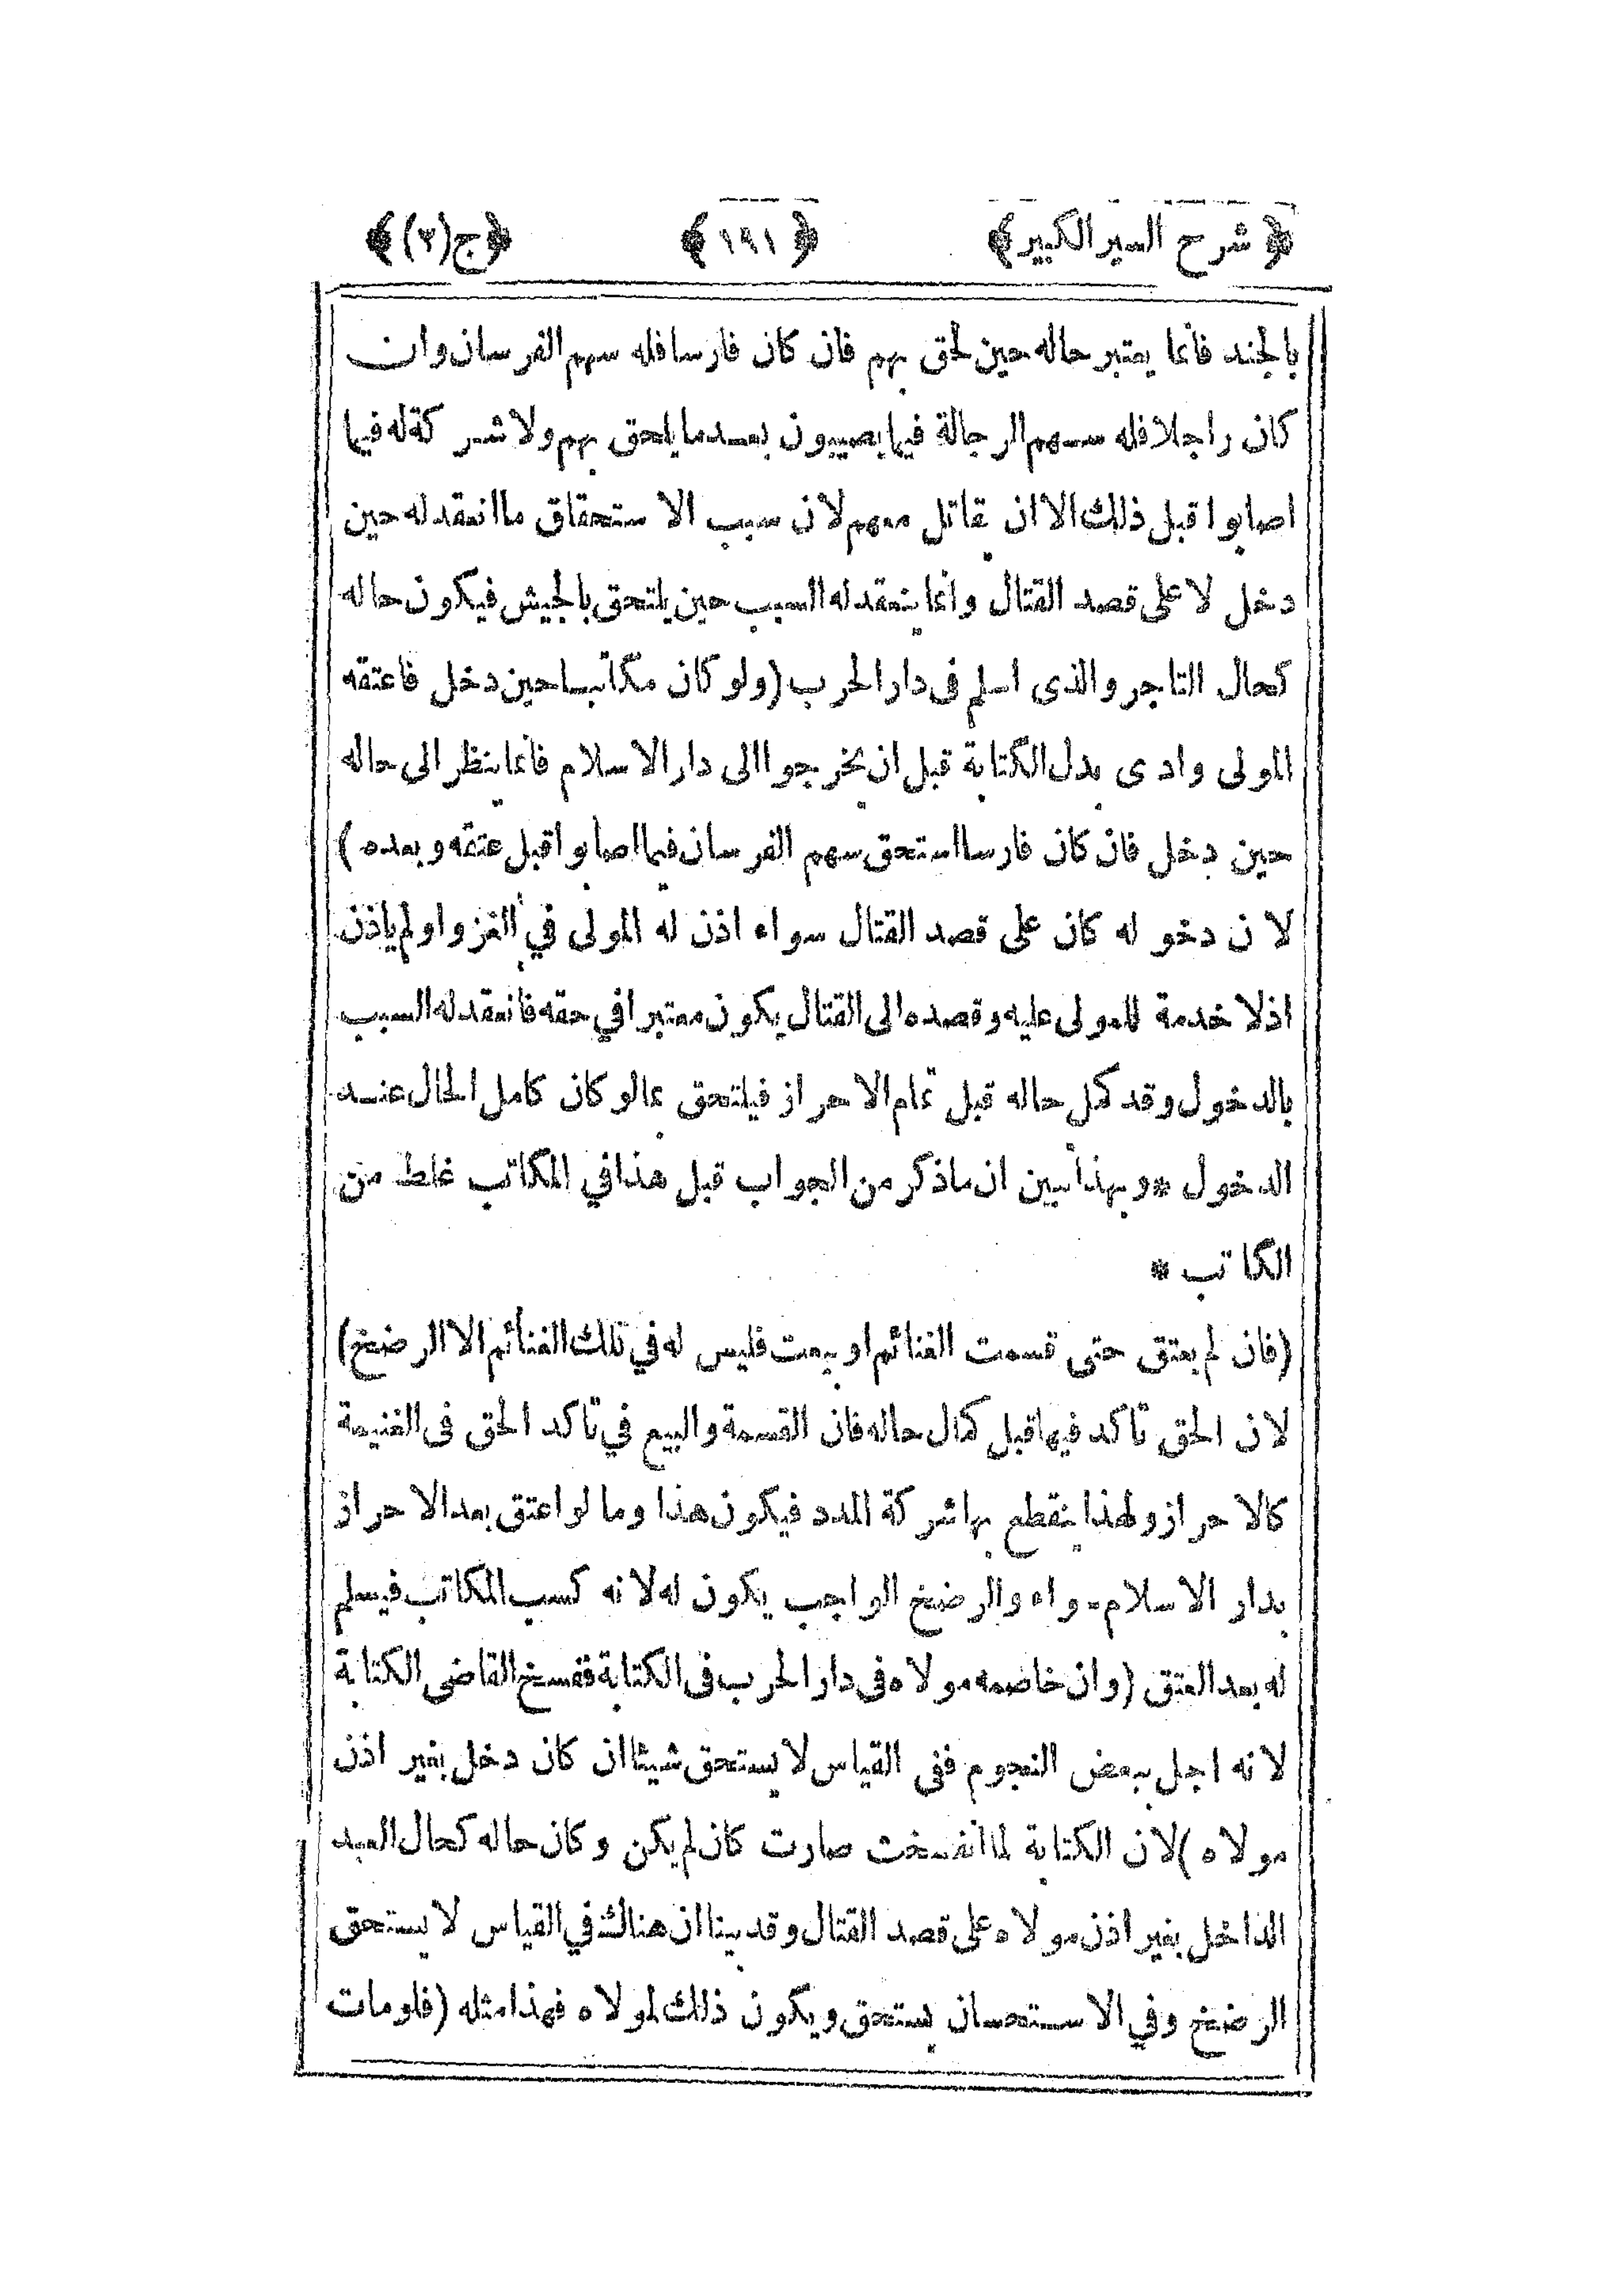 ﴿ شرح السير الكبير ﴾ ﴿ ١٩١ ﴾ ﴿ ج (٢) ﴾
بالجند فانما يعتبر حاله حين لحق بهم فان كان فارسا فله سهم الفرسان وان
كان راجلا فله سهم الرجالة فيما يصيبون بعدما يلحق بهم ولا شركة له فيما
اصابوا قبل ذلك الا ان يقاتل معهم لان سبب الاستحقاق ما انعقد له حين
دخل لا على قصد القتال وانما ينعقد له السبب حين يلتحق بالجيش فيكون حاله
كحال التاجر والذى اسلم فى دار الحرب (ولو كان مكاتبا حين دخل فاعتقه
المولى وادى بدل الكتابة قبل ان يخرجوا الى دار الاسلام فانما ينظر الى حاله
حين دخل فان كان فارسا استحق سهم الفرسان فيما اصابوا قبل عتقه وبعده)
لان دخوله كان على قصد القتال سواء اذن له المولى في الغزو او لم ياذن
اذ لا خدمة للمولى عليه وقصده الى القتال يكون معتبرا في حقه فانعقد له السبب
بالدخول وقد كمل حاله قبل تمام الاحراز فيلتحق بما لو كان كامل الحال عند
الدخول * وبهذا تبين ان ما ذكر من الجواب قبل هذا في المكاتب غلط من
الكاتب *
(فان لم يعتق حتى قسمت الغنائم او بيعت فليس له في تلك الغنائم الا الرضخ)
لان الحق تاكد فيها قبل كمال حاله فان القسمة والبيع في تاكد الحق فى الغنيمة
كالاحراز ولهذا ينقطع بها شركة المدد فيكون هذا وما لو اعتق بعد الاحراز
بدار الاسلام سواء والرضخ الواجب يكون له لانه كسب المكاتب فيسلم
له بعد العتق (وان خاصمه مولاه فى دار الحرب فى الكتابة ففسخ القاضى الكتابة
لانه اجل ببعض النجوم ففى القياس لا يستحق شيئا ان كان دخل بغير اذن
مولاه) لان الكتابة لما انفسخت صارت كان لم يكن وكان حاله كحال العبد
الداخل بغير اذن مولاه على قصد القتال وقد بينا ان هناك في القياس لا يستحق
الرضخ وفي الاستحسان يستحق ويكون ذلك لمولاه فهذا مثله (فلو مات